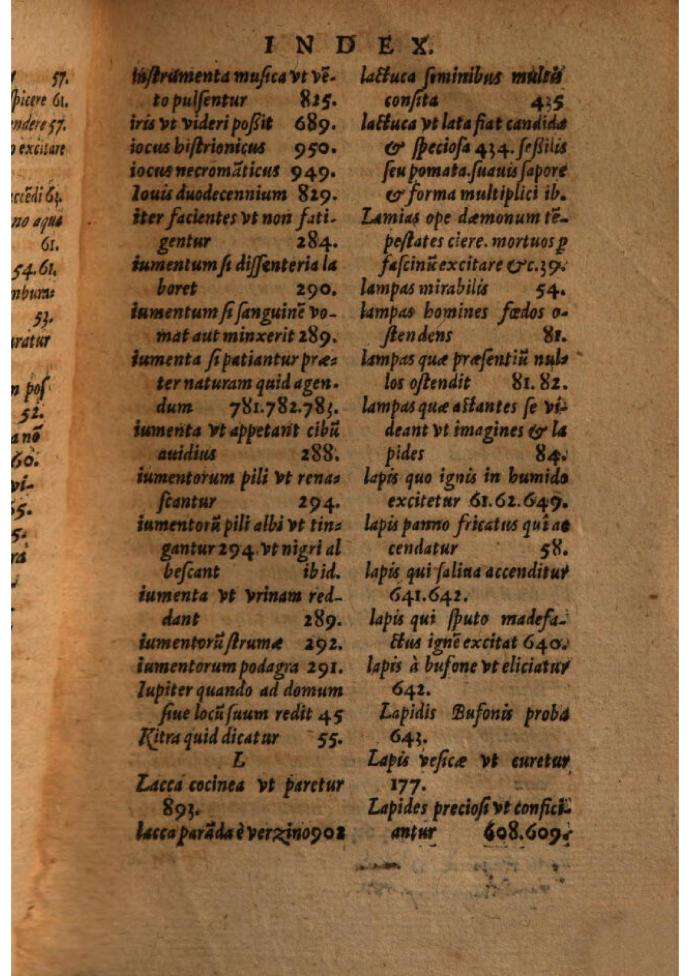 57.
spicere 61.
endere 57.
o excitare
accēdi 64.
no aqua
61.
54.61.
mbura=
53.
uratur
m pos
52.
a nō
60.
vi-
INDEX.
instrumenta musica vt vē-
to pulsentur 825.
iris vt videri poßit 689.
iocus histrionicus 950.
iocus necromāticus 949.
Iouis duodecennium 829.
iter facientes vt non fati-
gentur 284.
iumentum si dissenteria la
boret 290.
iumentum si sanguinē vo-
mat aut minxerit 289.
iumenta si patiantur præ=
ter naturam quid agen-
dum 781.782.783.
iumenta vt appetant cibū
auidius 288.
iumentorum pili vt rena=
scantur 294.
iumentorū pili albi vt tin=
gantur 294 vt nigri al
bescant ibid.
iumenta vt vrinam red-
dant 289.
iumentorū strumæ 292.
iumentorum podagra 291.
Iupiter quando ad domum
siue locū suum redit 45
Kitra quid dicatur 55.
L
Lacca cocinea vt paretur
893.
lacca parāda è verzino 902
lactuca seminibus multis
consita 435
lactuca vt lata fiat candida
& speciosa 434. seßilis
seu pomata. suauis sapore
& forma multiplici ib.
Lamias ope dæmonum tē-
pestates ciere. mortuos ꝑ
fascinū excitare &c. 39.
lampas mirabilis 54.
lampas homines fœdos o-
stendens 81.
lampas quæ præsentiū nul=
los ostendit 81.82.
lampas quæ astantes se vi-
deant vt imagines & la
pides 84.
lapis quo ignis in humido
excitetur 61.62.649.
lapis panno fricatus qui ac
cendatur 58.
lapis qui saliua accenditur
641.642.
lapis qui sputo madefa-
ctus ignē excitat 640.
lapis à bufone vt eliciatur
642.
Lapidis Bufonis proba
643.
Lapis vesicæ vt curetur
177.
Lapides preciosi vt confici-
antur 608.609.